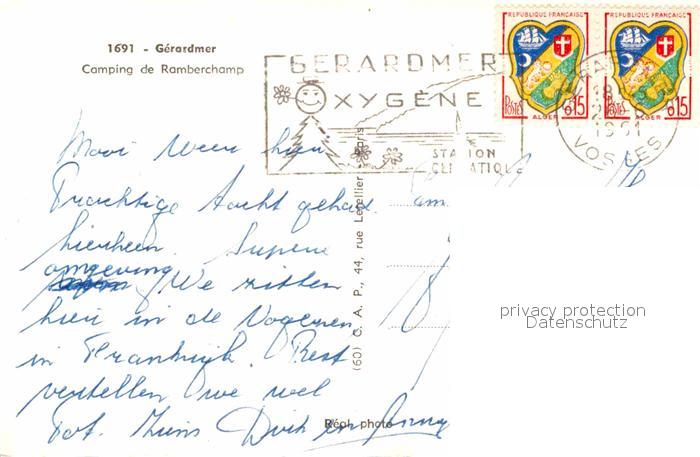 1691 - Gérardmer
Camping de Ramberchamp
GERARDMER
OXYGÈNE
STATION
CLIMATIQUE
REPUBLIQUE FRANÇAISE
POSTES 0,15
ALGER
REPUBLIQUE FRANÇAISE
POSTES 0,15
ALGER
18
1961
VOSGES
Mooi weer hier
Prachtige tocht gehad
hierheen. Supene
omgeving We zitten
hier in de Vogezen
in Frankrijk. Rest
vertellen we wel
Tot. Ziens Dick en
(60) C. A. P., 44, rue Letellier - Paris
Réph photo
privacy protection
Datenschutz